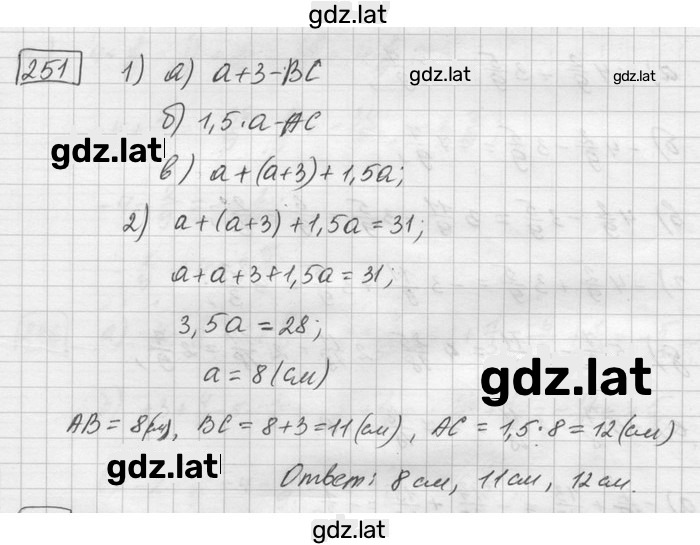 gdz.lat
251 1) а) a+3-BC
gdz.lat gdz.lat
б) 1,5·a-AC
gdz.lat
в) a+(a+3)+1,5a;
2) a+(a+3)+1,5a=31;
a+a+3+1,5a=31;
3,5a=28;
a=8(см)
gdz.lat
AB=8(см), BC=8+3=11(см), AC=1,5·8=12(см)
gdz.lat
Ответ: 8см, 11см, 12см.
gdz.lat